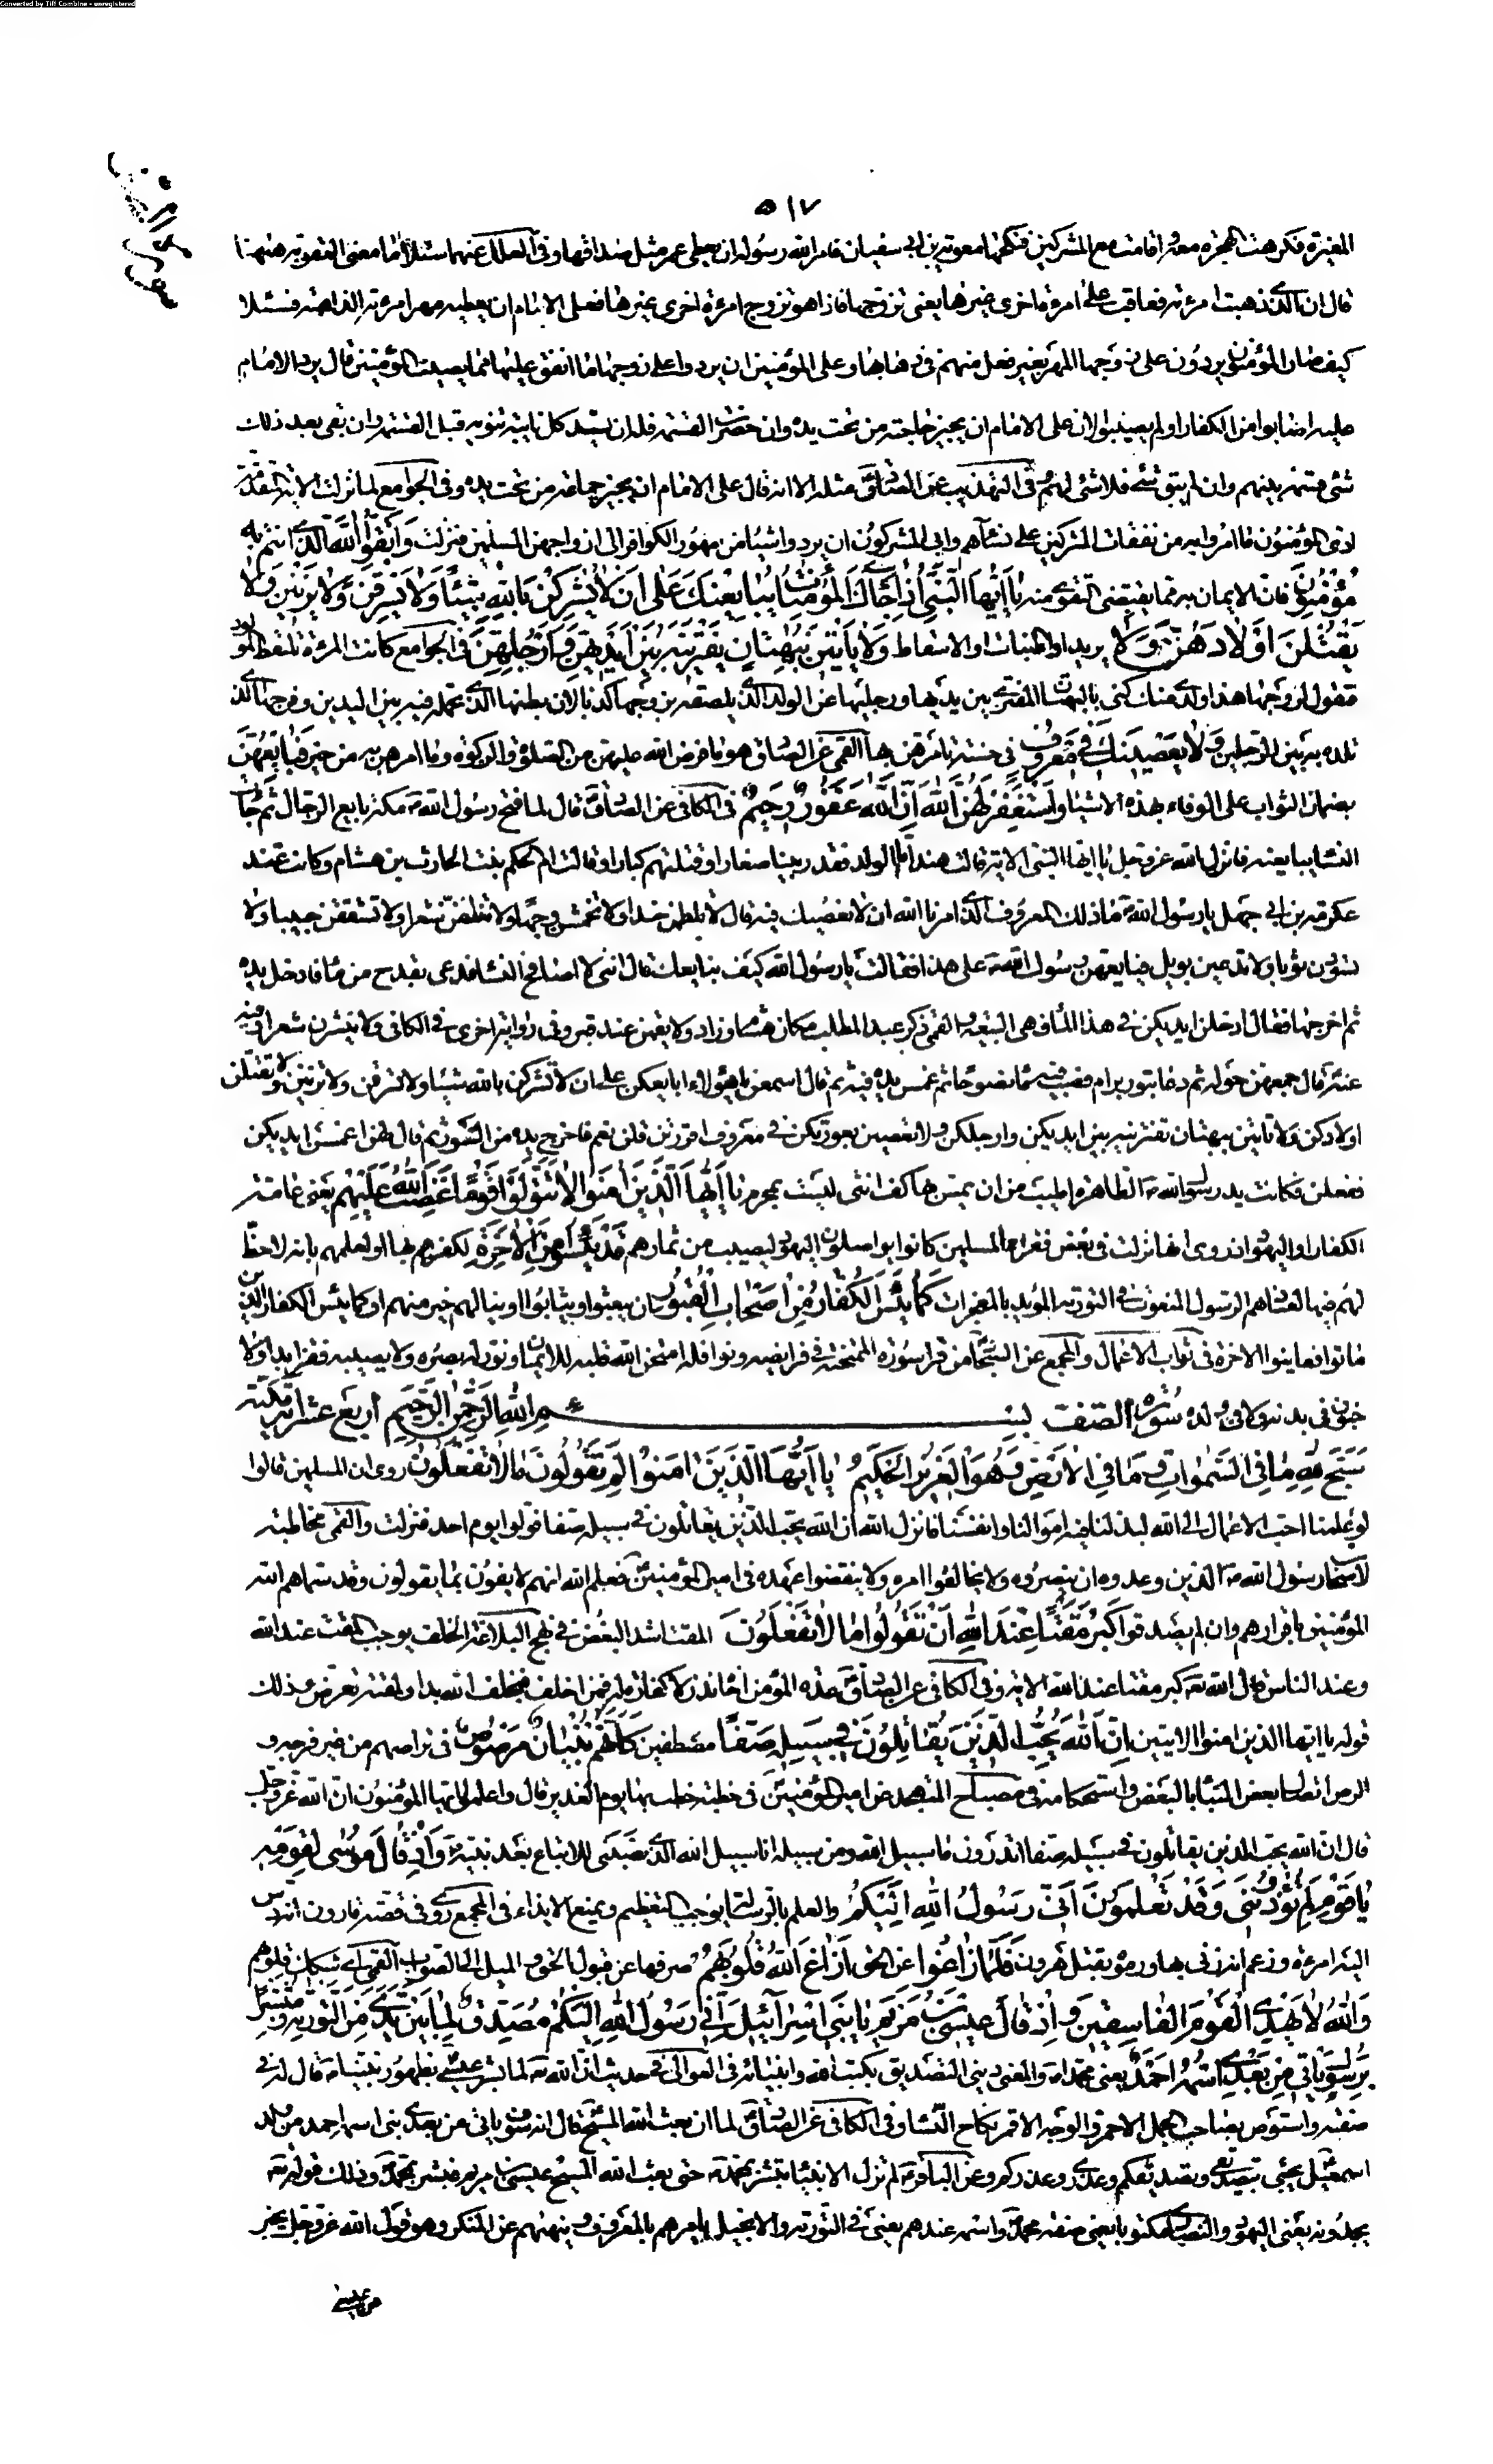 Converted by Tiff Combine - unregistered
٥١٧
المغيرة فكرهت الهجرة معه واقامت مع المشركين فنكحها معوية بن ابي سفيان فامر الله رسوله ان يعطي عمر مثل صداقها وفي العلل عنهما سئلا ما معنى العقوبة هيهنا
قال ان الذي ذهبت امرءته فعاقب على امرءة اخرى غيرها يعني تزوجها فاذا هو تزوج امرءة اخرى غيرها فعلى الامام ان يعطيه مهر امرءته الذاهبة فسئلا
كيف صار المؤمنون يردون على زوجها المهر بغير فعل منهم في ذهابها وعلى المؤمنين ان يردوا على زوجها ما انفق عليها مما يصيب المؤمنين قال يرد الامام
عليه اصابوا من الكفار او لم يصيبوا لان على الامام ان يجيز حاجته من تحت يده وان حضرت القسمة فله ان يسد كل نايبة تنوبه قبل القسمة وان بقي بعد ذلك
شئ قسمه بينهم وان لم يبق شئ فلا شئ لهم وفي التهذيب عن الصادق مثله الا انه قال على الامام ان يجيز جماعة من تحت يده وفي الجوامع لما نزلت الاية المتقدمة
ادى المؤمنون ما امروا به من نفقات المشركين على نسآئهم وابى المشركون ان يردوا شيئا من مهور الكوافر الى ازواجهن المسلمين فنزلت وَاتَّقُوا اللَّهَ الَّذِي اَنْتُمْ بِهِ
مُؤْمِنُونَ فان الايمان به مما يقتضي التقوى منه يَا اَيُّهَا النَّبِيُّ اِذَا جَاءَكَ الْمُؤْمِنَاتُ يُبَايِعْنَكَ عَلَى اَنْ لَا يُشْرِكْنَ بِاللَّهِ شَيْئًا وَلَا يَسْرِقْنَ وَلَا يَزْنِينَ وَلَا
يَقْتُلْنَ اَوْلَادَهُنَّ يريد واد البنات او الاسقاط وَلَا يَأْتِينَ بِبُهْتَانٍ يَفْتَرِينَهُ بَيْنَ اَيْدِيهِنَّ وَاَرْجُلِهِنَّ في الجوامع كانت المرءة تلتقط المولود
فتقول لزوجها هذا ولدي منك كنى بالبهتان المفترى بين يديها ورجليها عن الولد الذي يلصقه بزوجها كذبا لان بطنها الذي تحمله فيه بين اليدين وفرجها الذي
تلده به بين الرجلين وَلَا يَعْصِينَكَ فِي مَعْرُوفٍ في حسنة تامرهن بها القمي عن الصادق هو ما فرض الله عليهن من الصلوة والزكوة وما امرهن به من خير فَبَايِعْهُنَّ
بضمان الثواب على الوفاء بهذه الاشياء وَاسْتَغْفِرْ لَهُنَّ اللَّهَ اِنَّ اللَّهَ غَفُورٌ رَحِيمٌ في الكافي عن الصادق قال لما فتح رسول الله مكة بايع الرجال ثم جاءت
النساء يبايعنه فانزل الله عز وجل يا ايها النبي الاية قالت هند اما الولد فقد ربينا صغارا وقتلتهم كبارا وقالت ام الحكم بنت الحارث بن هشام وكانت عند
عكرمة بن ابي جهل يا رسول الله ما ذلك المعروف الذي امرنا الله ان لا نعصيك فيه قال لا تلطمن خدا ولا تخمشن وجها ولا تنتفن شعرا ولا تشققن جيبا ولا
تسودن ثوبا ولا تدعين بويل فبايعهن رسول الله على هذا فقالت يا رسول الله كيف نبايعك قال انني لا اصافح النساء فدعى بقدح من ماء فادخل يده
ثم اخرجها فقال ادخلن ايديكن في هذا الماء فهي البيعة والقمي ذكر عبد المطلب مكان هشام وزاد ولا يقمن عند قبر وفي رواية اخرى في الكافي ولا ينشرن شعرا وفيه
عنه قال جمعهن حوله ثم دعا بتور برام فصب فيه ماء نضوحا ثم غمس يده فيه ثم قال اسمعن يا هؤلاء ابايعكن على ان لا تشركن بالله شيئا ولا تسرقن ولا تزنين ولا تقتلن
اولادكن ولا تاتين ببهتان تفترينه بين ايديكن وارجلكن ولا تعصين بعولتكن في معروف اقررتن قلن نعم فاخرج يده من التور ثم قال لهن اغمسن ايديكن
ففعلن فكانت يد رسول الله الطاهرة اطيب من ان يمس بها كف انثى ليست بمحرم يَا اَيُّهَا الَّذِينَ اٰمَنُوا لَا تَتَوَلَّوْا قَوْمًا غَضِبَ اللَّهُ عَلَيْهِمْ يعني عامة
الكفار او اليهود اذ روي انها نزلت في بعض فقراء المسلمين كانوا يواصلون اليهود ليصيبوا من ثمارهم قَدْ يَئِسُوا مِنَ الْاٰخِرَةِ لكفرهم بها او لعلمهم بانه لا حظ
لهم فيها لعنادهم الرسول المنعوت في التورية المؤيد بالمعجزات كَمَا يَئِسَ الْكُفَّارُ مِنْ اَصْحَابِ الْقُبُورِ ان يبعثوا او يثابوا او ينالهم خير منهم او كما يئس الكفار الذين
ماتوا فعاينوا الاخرة في ثواب الاعمال والمجمع عن السجاد من قرا سورة الممتحنة في فرايضه ونوافله امتحن الله قلبه للايمان ونور له بصره ولا يصيبه فقر ابدا ولا
جنون في بدنه ولا في ولده سورة الصف بسم الله الرحمن الرحيم اربع عشرة اية مكية
سَبَّحَ لِلَّهِ مَا فِي السَّمٰوَاتِ وَمَا فِي الْاَرْضِ وَهُوَ الْعَزِيزُ الْحَكِيمُ يَا اَيُّهَا الَّذِينَ اٰمَنُوا لِمَ تَقُولُونَ مَا لَا تَفْعَلُونَ روي ان المسلمين قالوا
لو علمنا احب الاعمال الى الله لبذلنا فيه اموالنا وانفسنا فانزل الله ان الله يحب الذين يقاتلون في سبيله صفا فولوا يوم احد فنزلت والقمي مخاطبة
لاصحاب رسول الله الذين وعدوه ان ينصروه ولا يخالفوا امره ولا ينقضوا عهده في امير المؤمنين فعلم الله انهم لا يفون بما يقولون وقد سماهم الله
المؤمنين باقرارهم وان لم يصدقوا كَبُرَ مَقْتًا عِنْدَ اللَّهِ اَنْ تَقُولُوا مَا لَا تَفْعَلُونَ المقت اشد البغض في نهج البلاغة الخلف يوجب المقت عند الله
وعند الناس قال الله كبر مقتا عند الله الاية وفي الكافي عن الصادق عدة المؤمن اخاه نذر لا كفارة له فمن اخلف فبخلف الله بدا ولمقته تعرض وذلك
قوله يا ايها الذين امنوا الايتين اِنَّ اللَّهَ يُحِبُّ الَّذِينَ يُقَاتِلُونَ فِي سَبِيلِهِ صَفًّا مصطفين كَاَنَّهُمْ بُنْيَانٌ مَرْصُوصٌ في تراصهم من غير فرجة و
الرص اتصال بعض البناء بالبعض واستحكامه في مصباح المتهجد عن امير المؤمنين في خطبة خطب بها يوم الغدير قال واعلموا ايها المؤمنون ان الله عز وجل
قال ان الله يحب الذين يقاتلون في سبيله صفا اتدرون ما سبيل الله ومن سبيله انا سبيل الله الذي نصبني للاتباع بعد نبيه وَاِذْ قَالَ مُوسٰى لِقَوْمِهِ
يَا قَوْمِ لِمَ تُؤْذُونَنِي وَقَدْ تَعْلَمُونَ اَنِّي رَسُولُ اللَّهِ اِلَيْكُمْ والعلم بالرسالة يوجب التعظيم ويمنع الايذاء في المجمع روي في قصة قارون انه دس
اليه امرءة وزعم انه زنى بها ورموه بقتل هرون فَلَمَّا زَاغُوا عن الحق اَزَاغَ اللَّهُ قُلُوبَهُمْ صرفها عن قبول الحق والميل الى الصواب القمي اي شكك قلوبهم
وَاللَّهُ لَا يَهْدِي الْقَوْمَ الْفَاسِقِينَ وَاِذْ قَالَ عِيسَى بْنُ مَرْيَمَ يَا بَنِي اِسْرَائِيلَ اِنِّي رَسُولُ اللَّهِ اِلَيْكُمْ مُصَدِّقًا لِمَا بَيْنَ يَدَيَّ مِنَ التَّوْرٰيةِ وَمُبَشِّرًا
بِرَسُولٍ يَأْتِي مِنْ بَعْدِي اسْمُهُ اَحْمَدُ يعني محمدا والمعنى ديني التصديق بكتب الله وانبيائه في العوالي في حديث ان الله لما بشر عيسى بظهور نبينا قال له في
صفته واستوص بصاحب الجمل الاحمر والوجه الاقمر نكاح النساء وفي الكافي عن الصادق لما ان بعث الله المسيح قال انه سوف ياتي من بعدي نبي اسمه احمد من ولد
اسمعيل يجئ بتصديقي وتصديقكم وعذري وعذركم وعن الباقر لم تزل الانبياء تبشر بمحمد حتى بعث الله المسيح عيسى بن مريم فبشر بمحمد وذلك قوله
يجدونه يعني اليهود والنصارى مكتوبا يعني صفة محمد واسمه عندهم يعني في التورية والانجيل يامرهم بالمعروف وينهيهم عن المنكر وهو قول الله عز وجل يخبر
عن عيسى